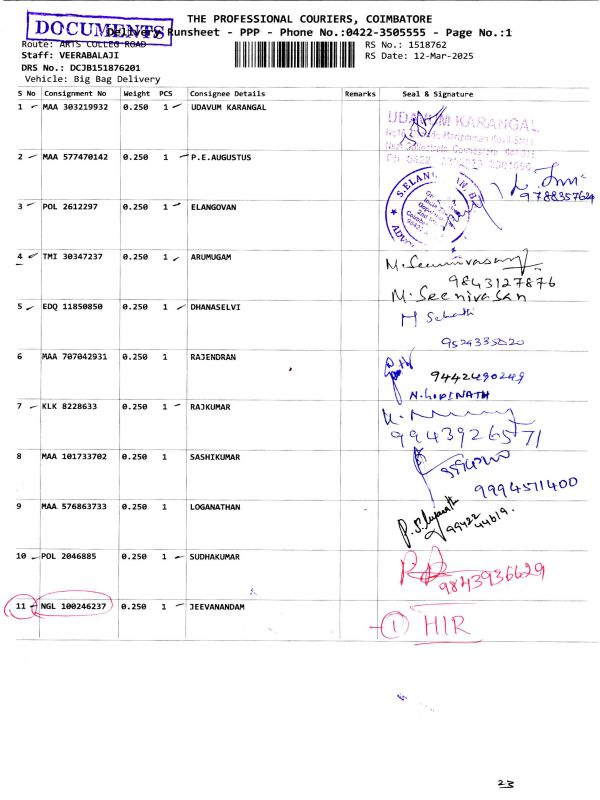 THE PROFESSIONAL COURIERS, COIMBATORE
DOCUMENTS
Delivery Runsheet - PPP - Phone No.:0422-3505555 - Page No.:1
Route: ARTS COLLEG ROAD
RS No.: 1518762
Staff: VEERABALAJI
RS Date: 12-Mar-2025
DRS No.: DCJB151876201
Vehicle: Big Bag Delivery
S No Consignment No Weight PCS Consignee Details Remarks Seal & Signature
1 MAA 303219932 0.250 1 UDAVUM KARANGAL
UDAVUM KARANGAL
2 MAA 577470142 0.250 1 P.E.AUGUSTUS
9788357624
3 POL 2612297 0.250 1 ELANGOVAN
S.ELAN
4 TMI 30347237 0.250 1 ARUMUGAM
9843127876
M. Seenivasan
5 EDQ 11850850 0.250 1 DHANASELVI
9524335020
6 MAA 707042931 0.250 1 RAJENDRAN
9442490249
N. GOPINATH
7 KLK 8228633 0.250 1 RAJKUMAR
9943926571
8 MAA 101733702 0.250 1 SASHIKUMAR
9994571400
9 MAA 576863733 0.250 1 LOGANATHAN
99422
44619.
10 POL 2046885 0.250 1 SUDHAKUMAR
9843936629
11 NGL 100246237 0.250 1 JEEVANANDAM
1 HIR
23